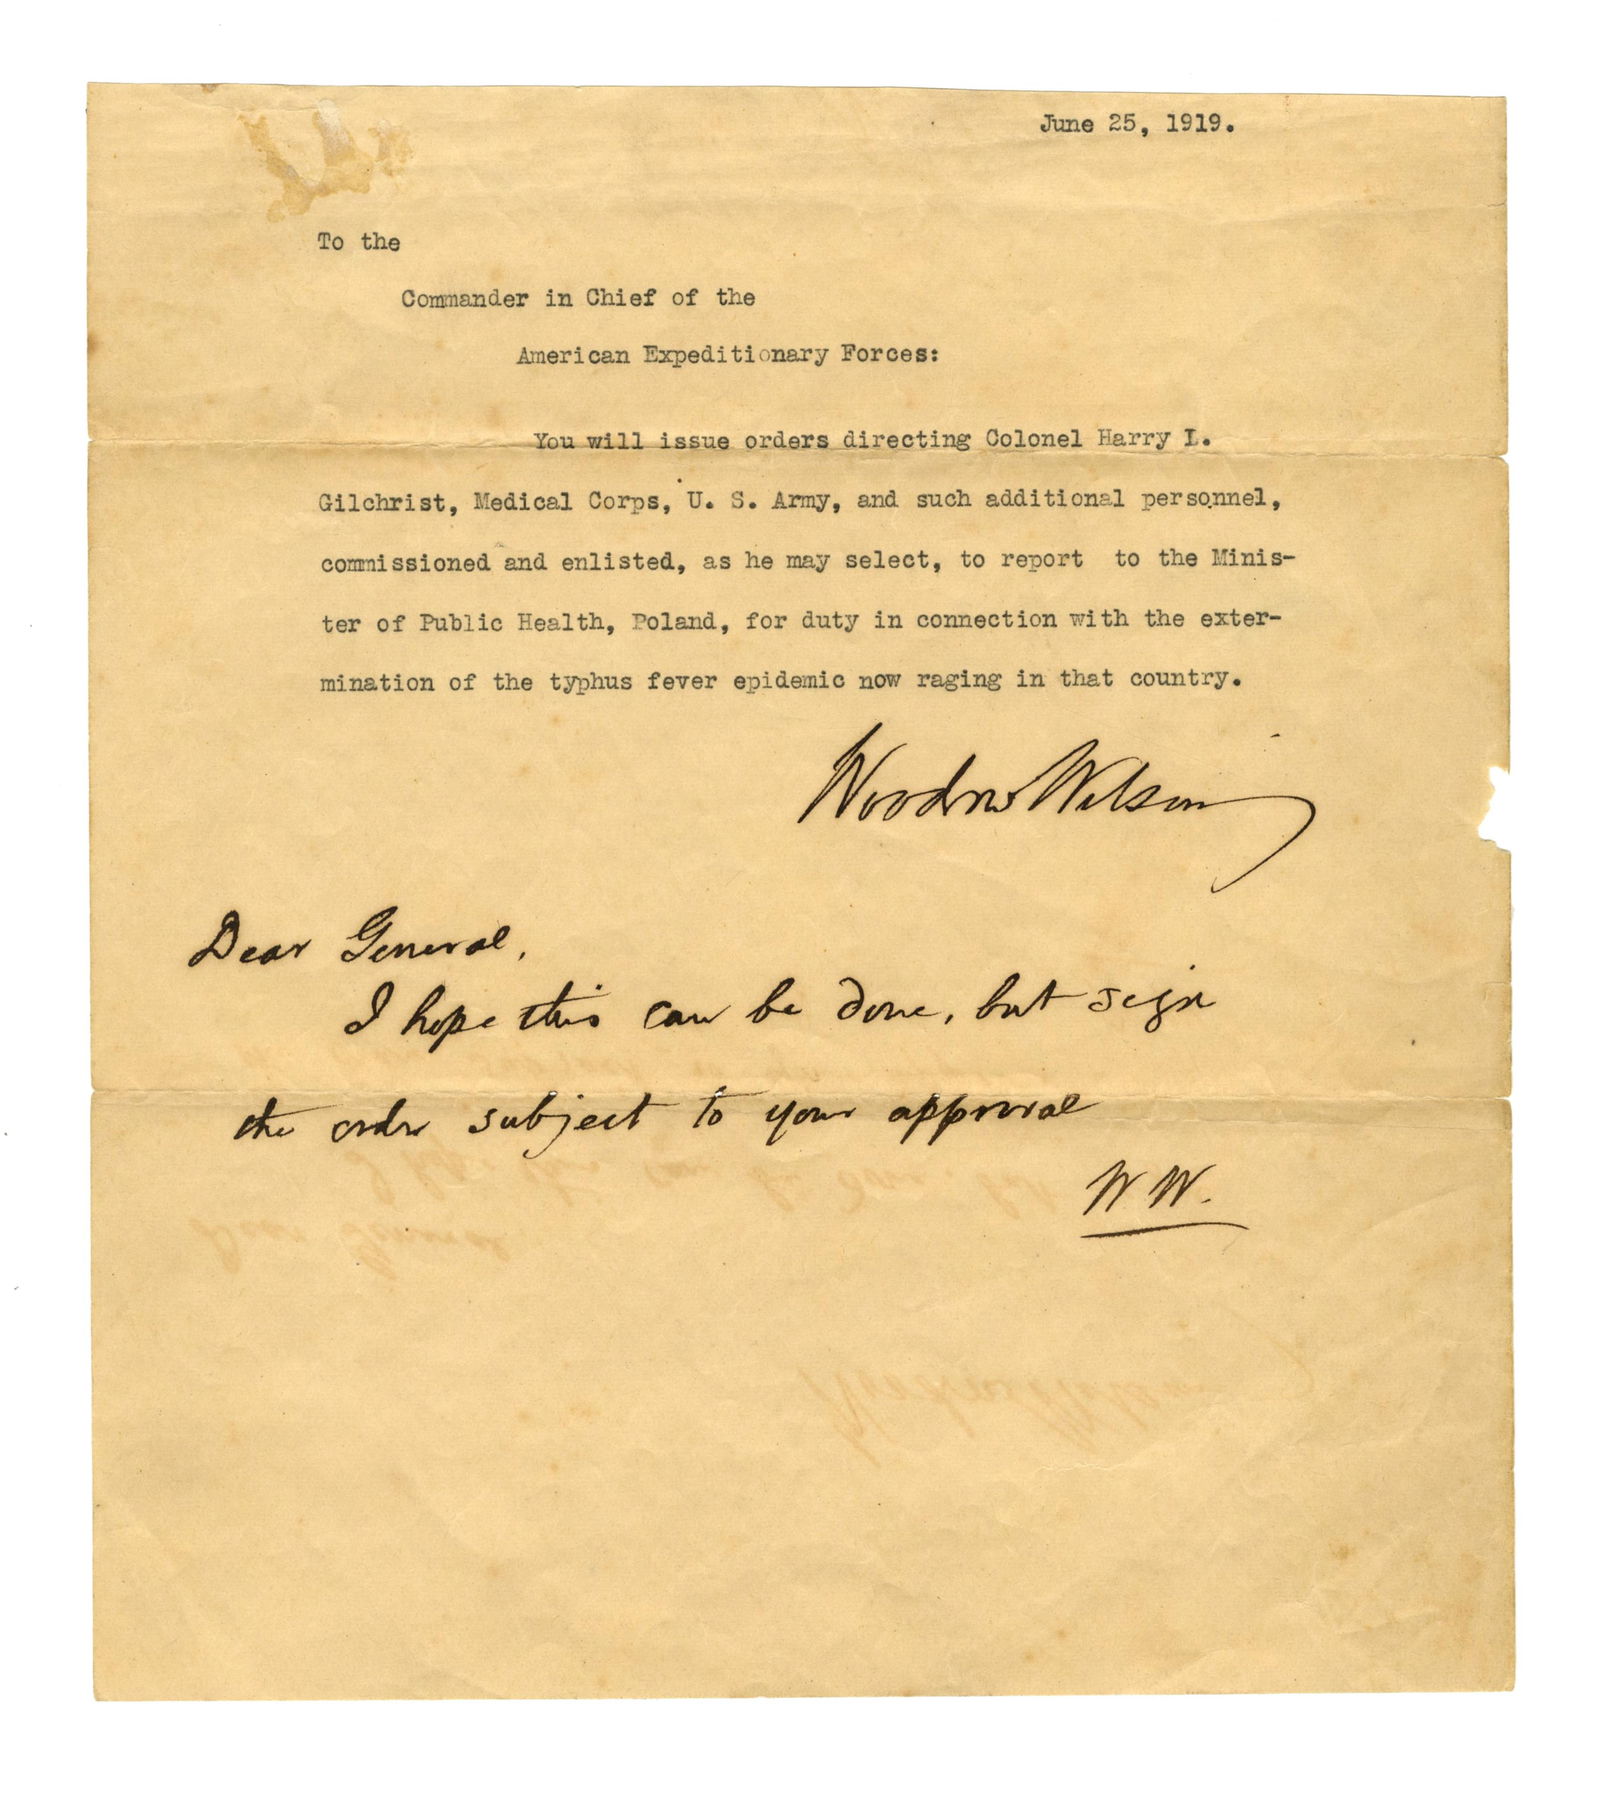 June 25, 1919.
To the
Commander in Chief of the
American Expeditionary Forces:
You will issue orders directing Colonel Harry L.
Gilchrist, Medical Corps, U. S. Army, and such additional personnel,
commissioned and enlisted, as he may select, to report to the Minis-
ter of Public Health, Poland, for duty in connection with the exter-
mination of the typhus fever epidemic now raging in that country.
Woodrow Wilson
Dear General,
I hope this can be done, but sign
the order subject to your approval
W W.